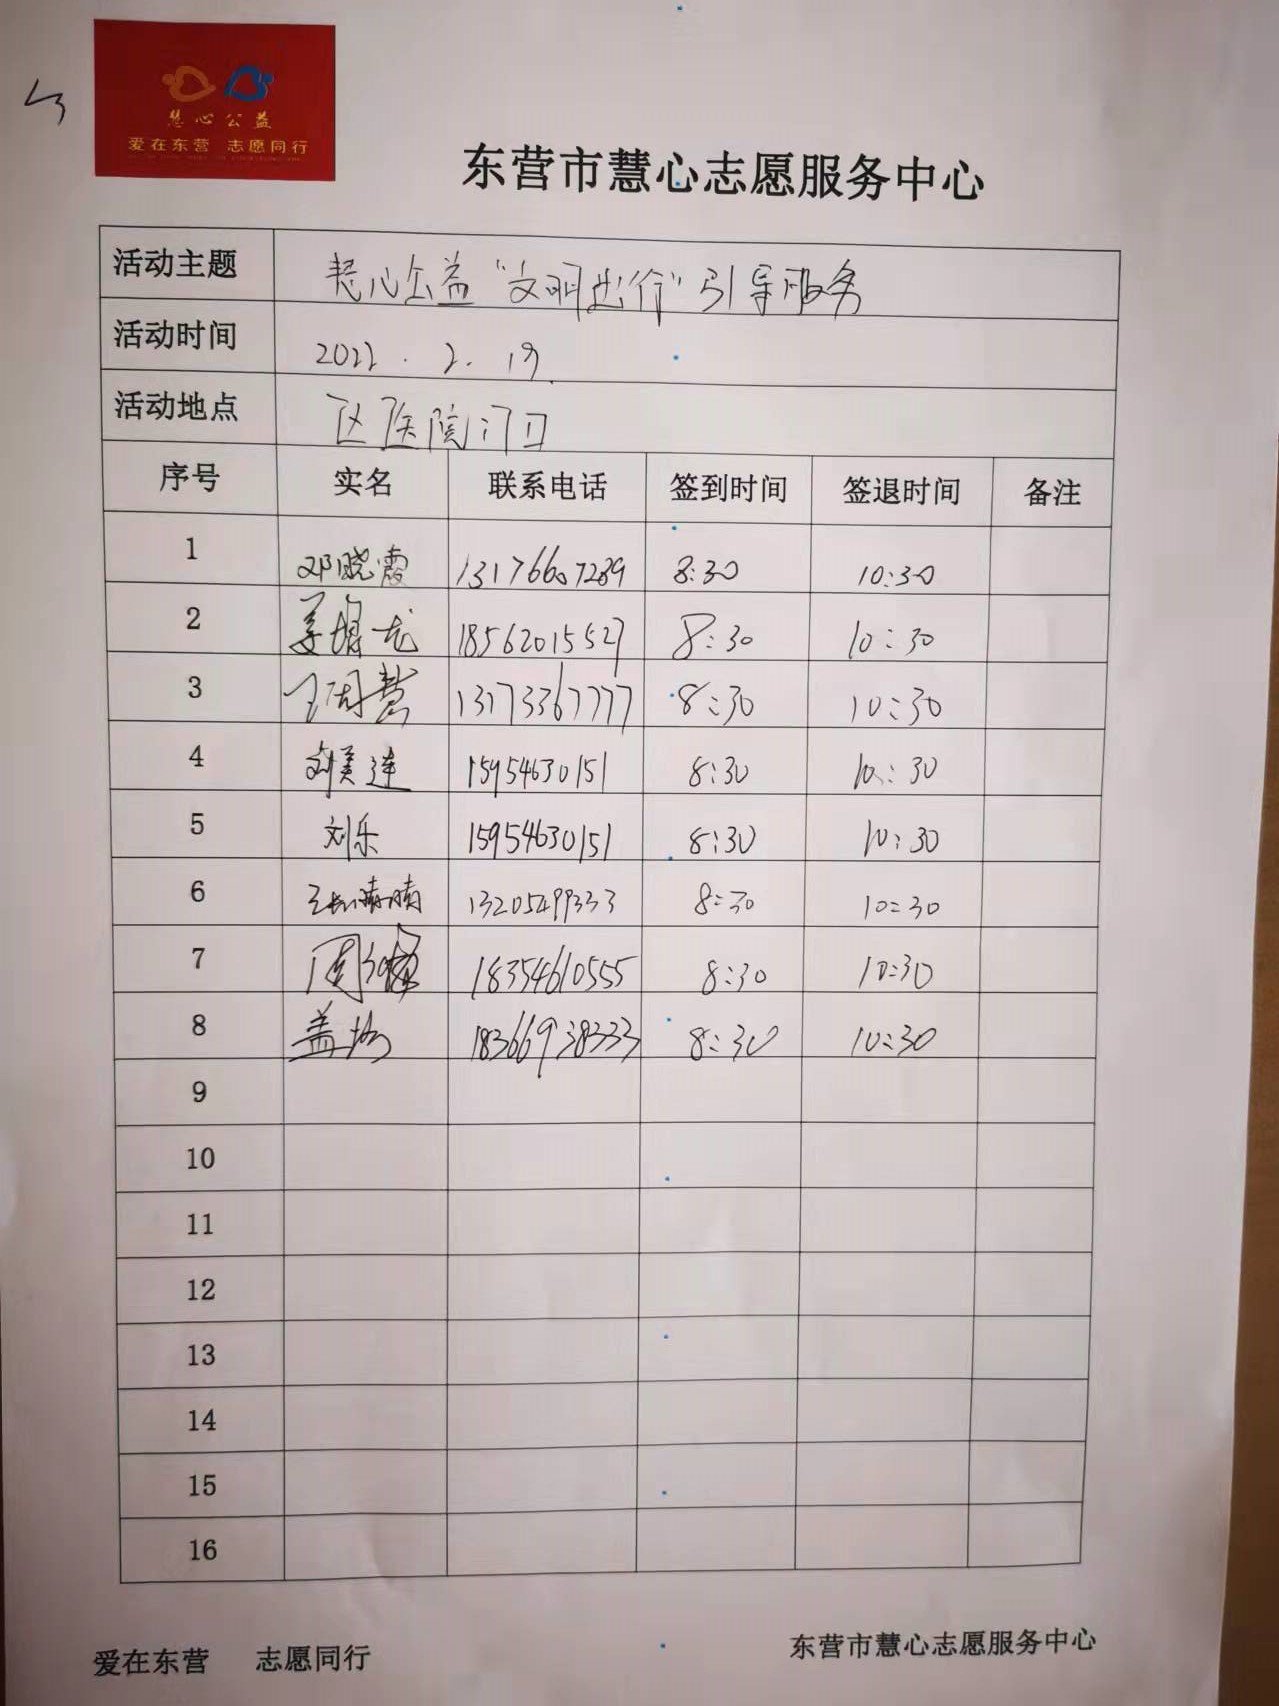 慧心公益
爱在东营 志愿同行
东营市慧心志愿服务中心
活动主题 慧心公益“文明出行”引导服务
活动时间 2022.2.19
活动地点 区医院门口
序号 实名 联系电话 签到时间 签退时间 备注
1 邓晓霞 13176607289 8:30 10:30
2 18562015527 8:30 10:30
3 13173367777 8:30 10:30
4 刘美莲 15954630151 8:30 10:30
5 刘乐 15954630151 8:30 10:30
6 13205499333 8:30 10:30
7 18354610555 8:30 10:30
8 18366938333 8:30 10:30
9
10
11
12
13
14
15
16
爱在东营 志愿同行 东营市慧心志愿服务中心